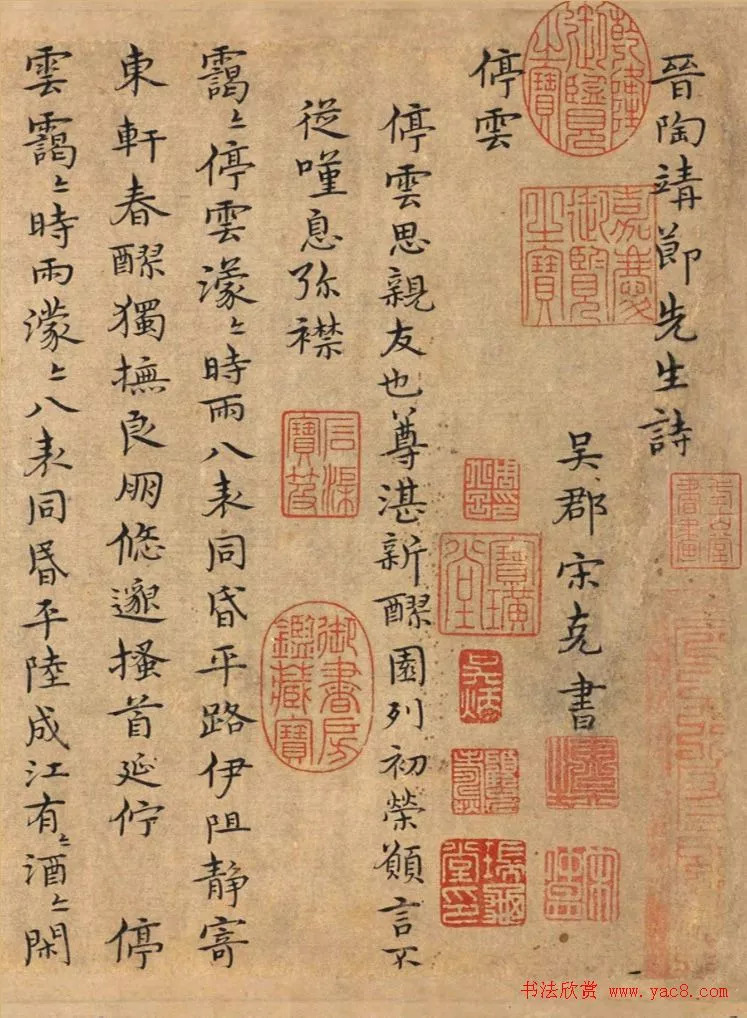 晉陶靖節先生詩
吳郡宋克書
停雲
停雲思親友也尊湛新醪園列初榮願言不
從嘆息弥襟
靄〻停雲濛〻時雨八表同昏平路伊阻靜寄
東軒春醪獨撫良朋悠邈搔首延佇 停
雲靄〻時雨濛〻八表同昏平陸成江有〻酒〻閑
乾隆御覽之寶
嘉慶御覽之寶
御書房鑑藏寶
书法欣赏 www.yac8.com